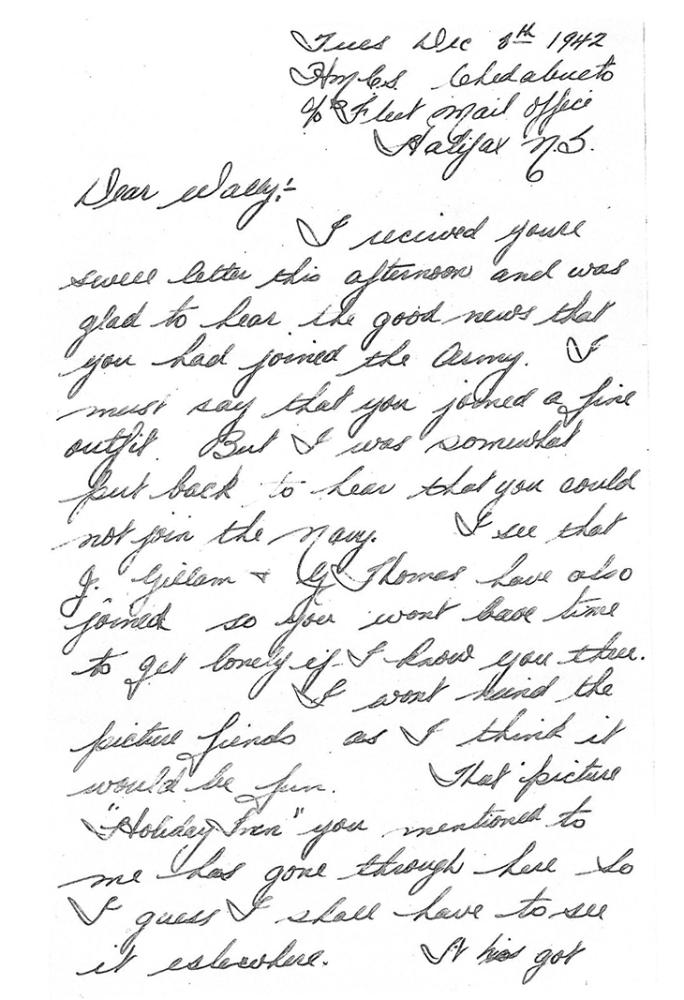 Tues Dec 8th 1942
H.M.C.S. Chedabucto
c/o Fleet Mail Office
Halifax N.S.
Dear Wally:-
I recieved youre
swell letter this afternoon and was
glad to hear the good news that
you had joined the Army. I
must say that you joined a fine
outfit. But I was somewhat
put back to hear that you could
not join the Navy. I see that
J. Gillam + G Thomas have also
joined so you wont have time
to get lonely if I know you three.
I wont mind the
picture fiends as I think it
would be fun. That picture
"Holiday Inn" you mentioned to
me has gone through here so
I guess I shall have to see
it eslewhere. It has got